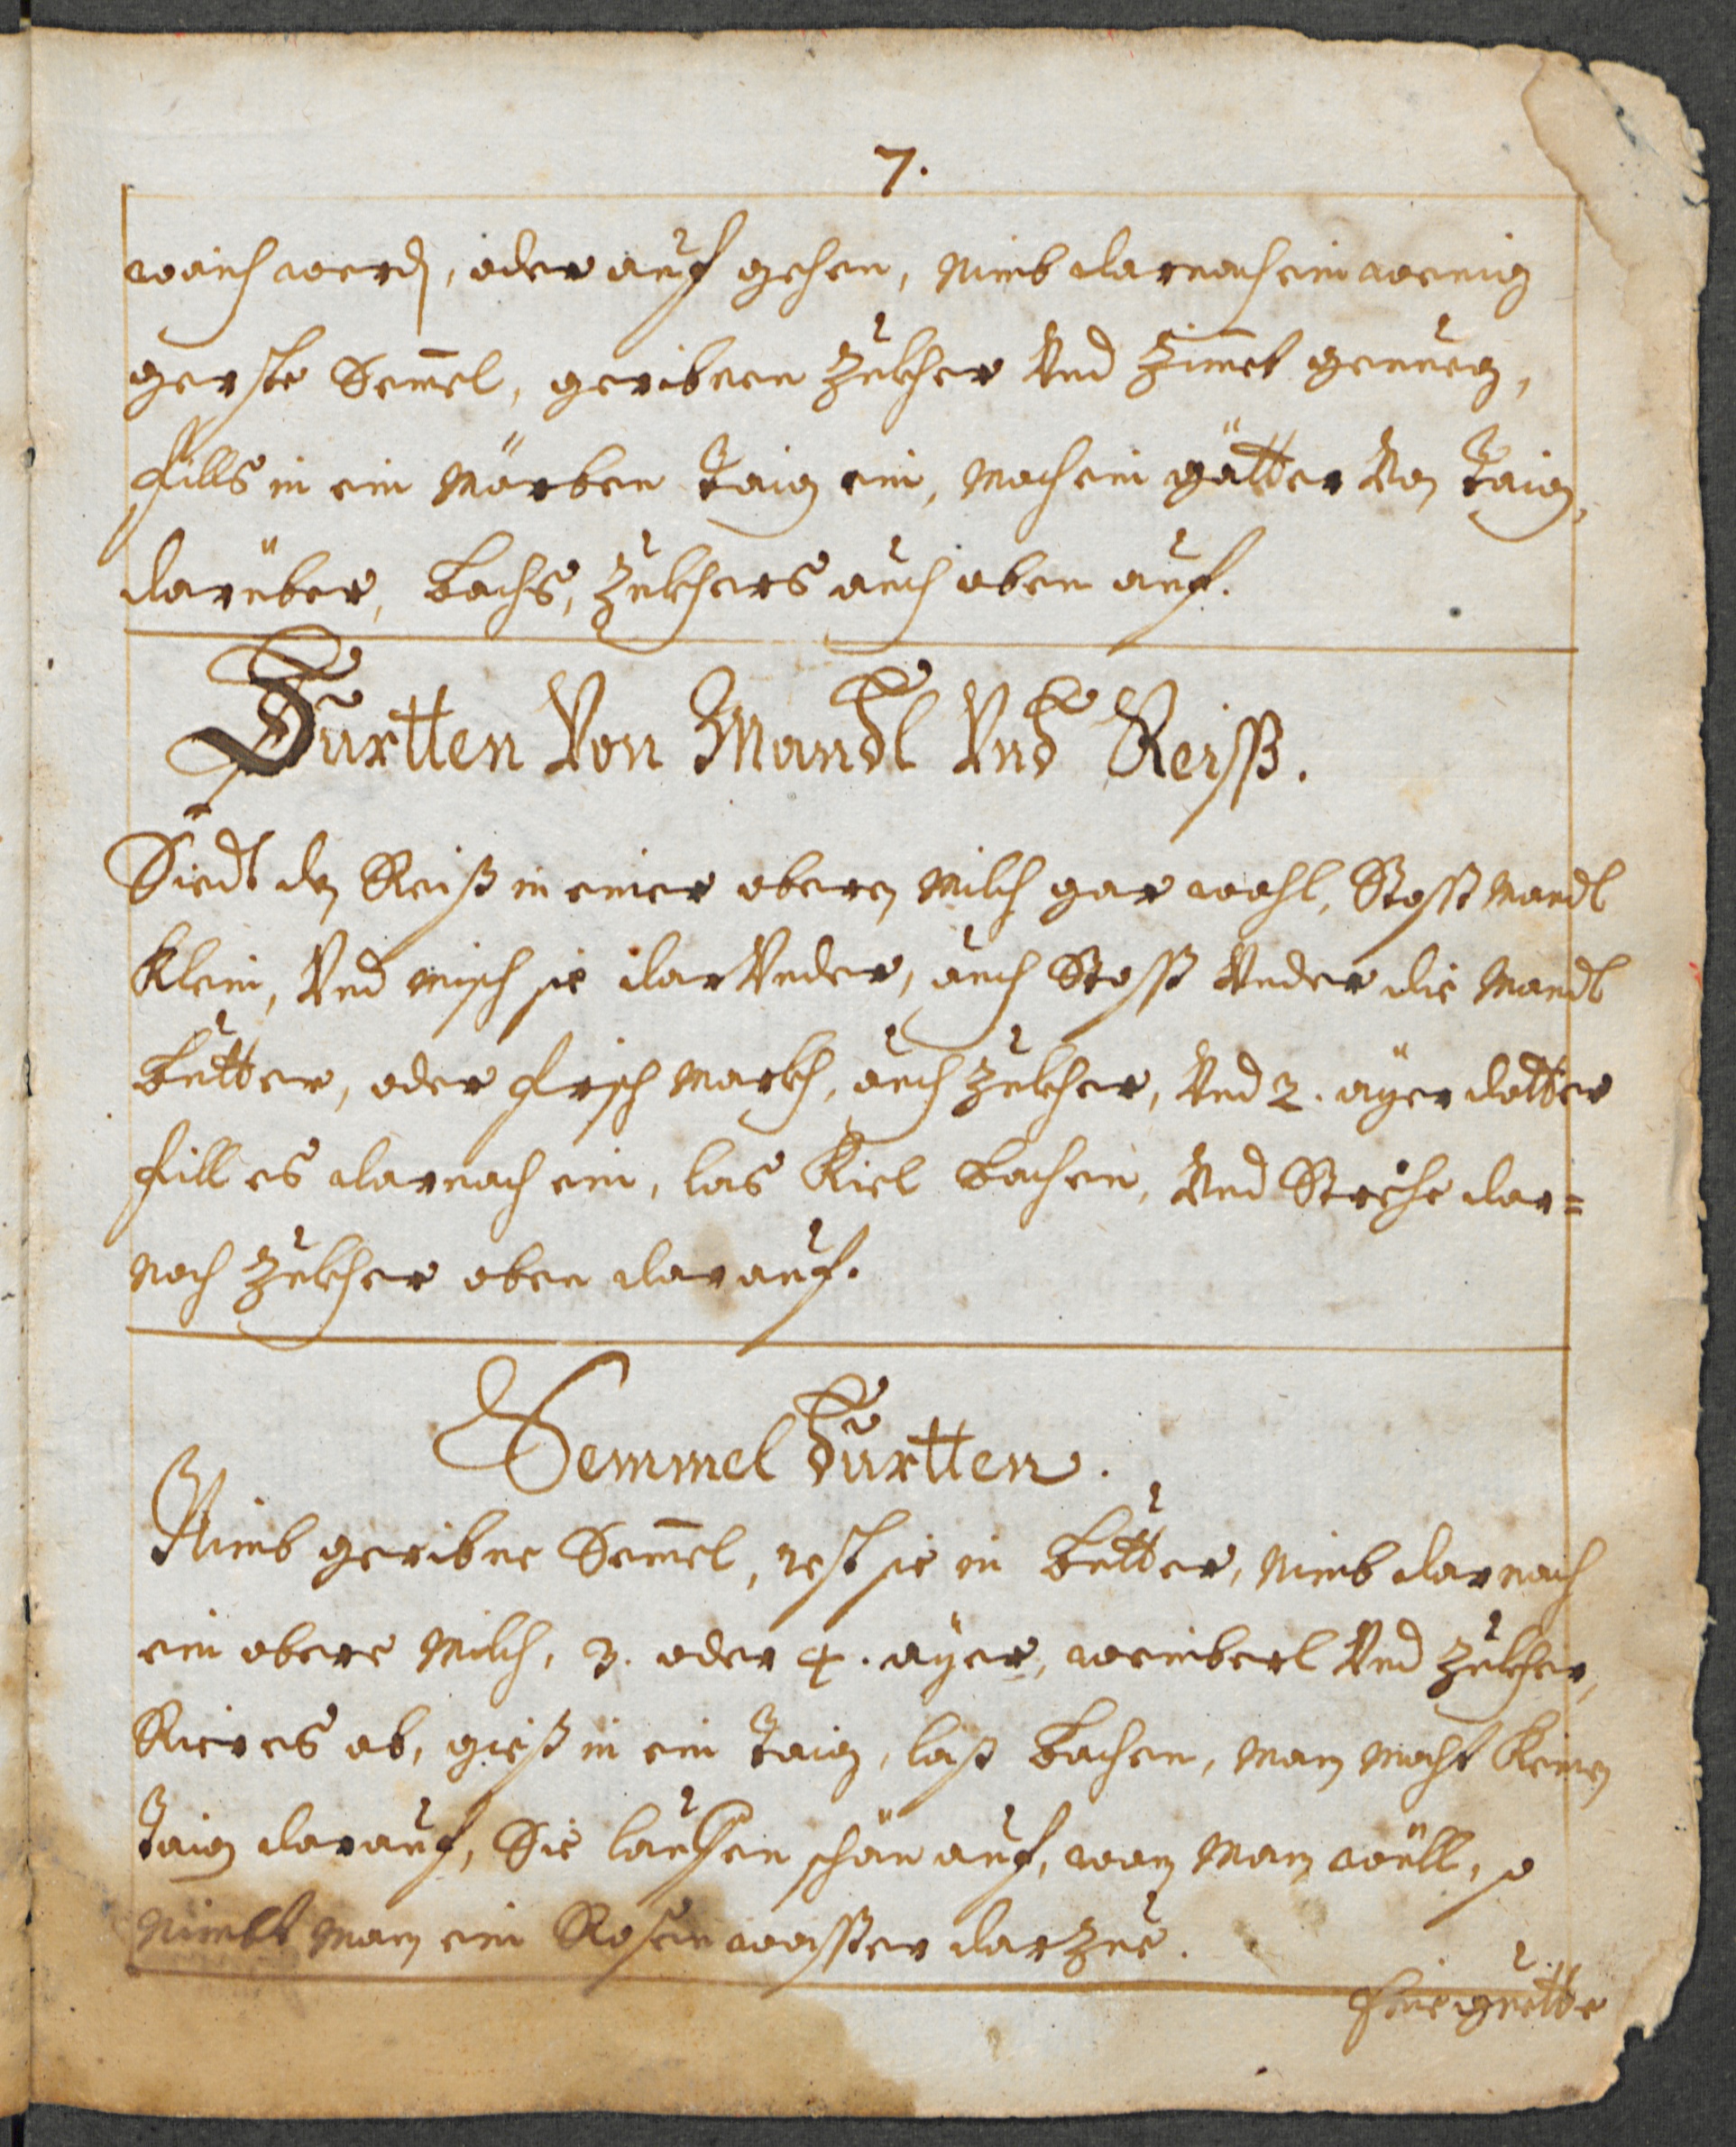 7.
waich werd, oder auf gehen, nimb darnach ein wenig
gerste Sem̄el, geribnen Zukher Vnd Zim̄et genueg,
fülls in ein Mörben Taig ein, mach ein gätter Von Taig,
darüber, bachs, Zukhers auch oben auf.
Turtten Von Mandl Vnd Reiß.
Siedt den Reiß in einer oberen Milch gar wohl, Stoß Mandl
Klein, Vnd misch sie darVnder, auch Stoß Vnder die Mandl
butter, oder frisch March, auch Zukher, Vnd 2. ayer dotter
füll es darnach ein, las Kiel bachen, Vnd Strehe dar=
nach Zukher oben darauf.
Semmel Turtten.
Nimb geribne Sem̄el, rest sie in butter, nimb darnach
ein obere Milch, 3. oder 4. ayer, weinberl Vnd Zukher,
Rier es ab, gieß in ein Taig, laß bachen, man macht Keinen
Taig darauf, Sie lauffen schön auf, wan man wüll, so
nimbt man ein Rosenwasser darzue.